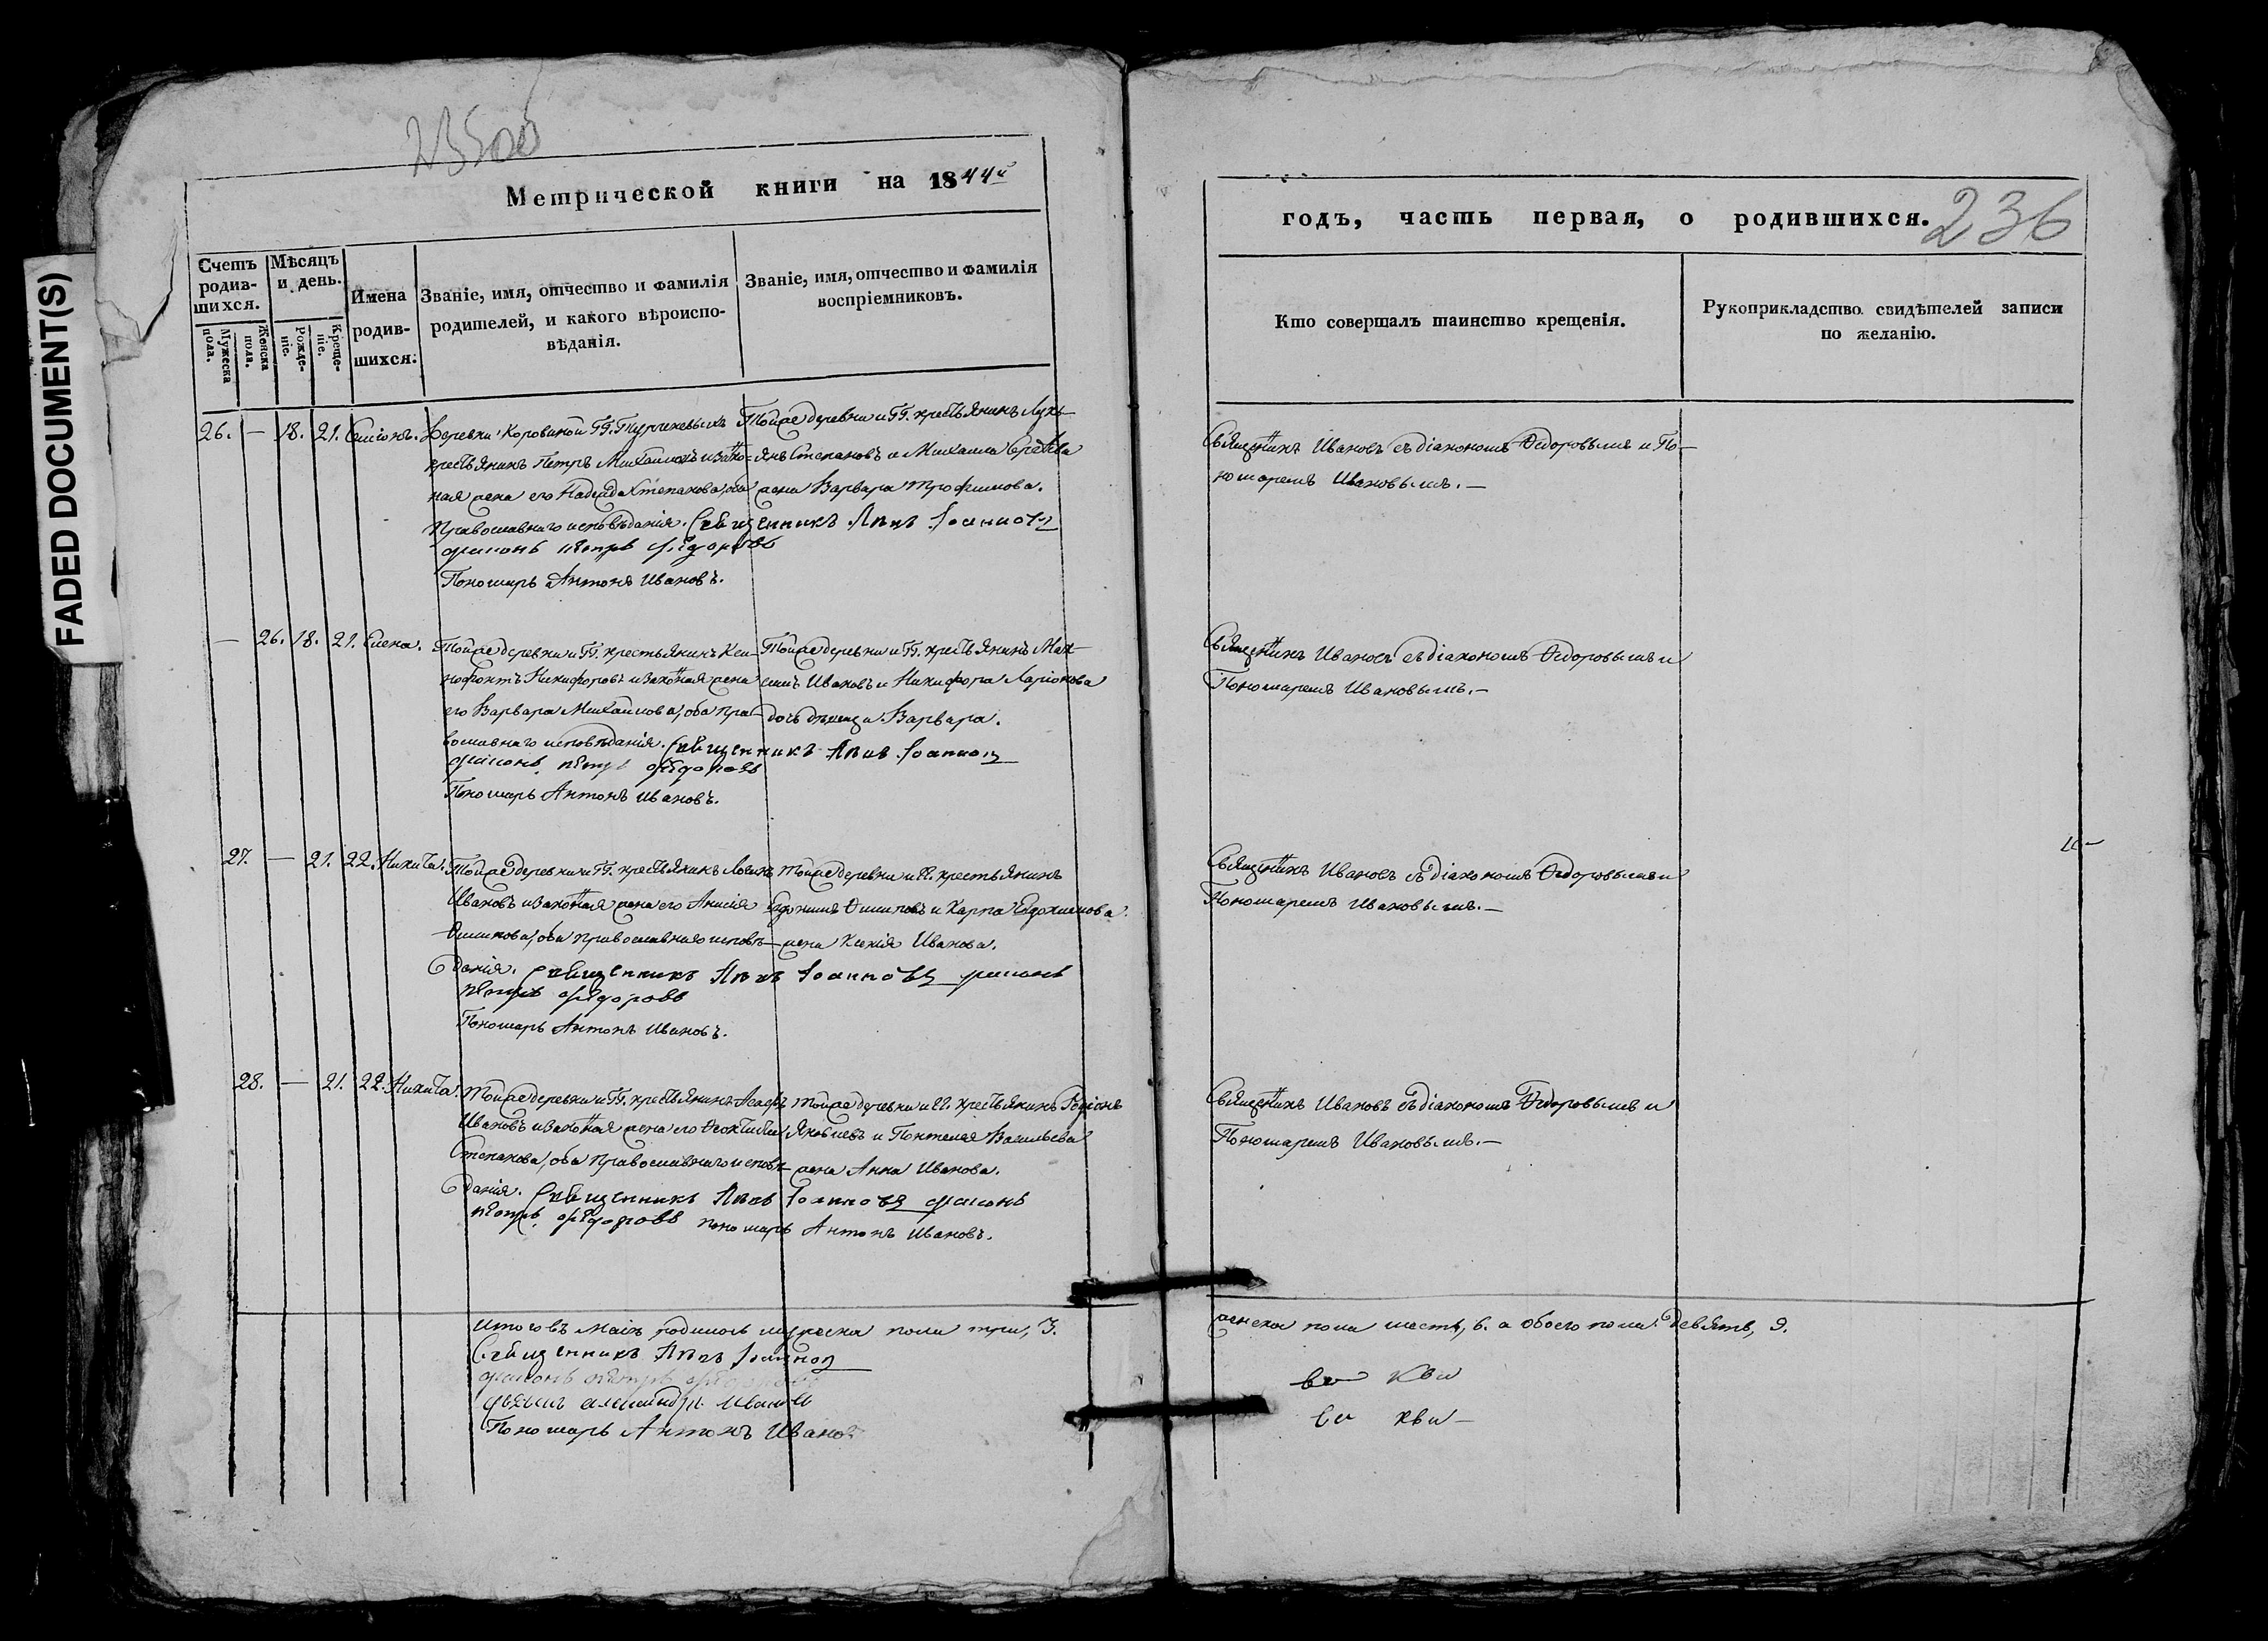 FADED DOCUMENT(S)
Метрической книги на 1844й
годъ, часть первая, о родившихся.
236
Счетъ родив-шихся.
Мужеска пола.
Женска пола.
Мѣсяцъ и день.
Рожде-ніе.
Креще-ніе.
Имена родив-шихся.
Званіе, имя, отчество и фамилія
родителей, и какого вѣроиспо-
вѣданія.
Званіе, имя, отчество и фамилія
воспріемниковъ.
Кто совершалъ таинство крещенія.
Рукоприкладство свидѣтелей записи
по желанію.
26. — 18. 21. Симіонъ.
Деревни Коровиной ГГ. Тургеневыхъ
крестьянинъ Петръ Михайловъ и зако-
ная жена его Надежда Степанова, оба
православнаго исповѣданія. Священникъ Іоаннов
диаконъ петръ Федоровъ
Пономарь Антонъ Ивановъ.
Тойже деревни и ГГ. крестьянинъ Лукь-
янъ Степановъ и Михаила Сергѣева
жена Варвара Трофимова.
Священникъ Ивановъ съ діакономъ Ѳедоровымъ и По-
номаремъ Ивановымъ. —
— 26. 18. 21. Елена.
Тойже деревни и ГГ. крестьянинъ Ксе-
нофонтъ Никифоровъ и законная жена
его Варвара Михайлова, оба пра-
вославнаго исповѣданія. Священникъ Іоаннов
диаконъ петръ Федоровъ
Пономарь Антонъ Ивановъ.
Тойже деревни и ГГ. крестьянинъ Мак-
симъ Ивановъ и Никифора Ларіонова
дочь дѣвица Варвара.
Священникъ Ивановъ съ діакономъ Ѳедоровымъ и
Пономаремъ Ивановымъ. —
27. — 21. 22. Никита.
Тойже деревни и ГГ. крестьянинъ Логинъ
Ивановъ и законная жена его Анисія
Филипова, оба православнаго исповѣ-
данія. Священникъ Іоанновъ диаконъ
петръ Федоровъ
Пономарь Антонъ Ивановъ.
Тойже деревни и ГГ. крестьянинъ
Евдокимъ Филиповъ и Карпа Евдокимова
жена Ксенія Иванова.
Священникъ Ивановъ съ діакономъ Ѳедоровымъ и
Пономаремъ Ивановымъ. —
28. — 21. 22. Никита.
Тойже деревни и ГГ. крестьянинъ Асафъ
Ивановъ и законная жена его Ѳеоктиста
Степанова, оба православнаго исповѣ-
данія. Священникъ Іоанновъ диаконъ
петръ Федоровъ пономарь Антонъ Ивановъ.
Тойже деревни и ГГ. крестьянинъ Родіонъ
Яковлевъ и Понтелея Васильева
жена Анна Иванова.
Священникъ Ивановъ съ діакономъ Ѳедоровымъ и
Пономаремъ Ивановымъ. —
Итого въ Маіѣ родилось мужеска пола три, 3.
Священникъ Іоаннов
диаконъ петръ Федоровъ
Пономарь Антонъ Иванов
женска пола шесть, 6. а обоего пола девять, 9.